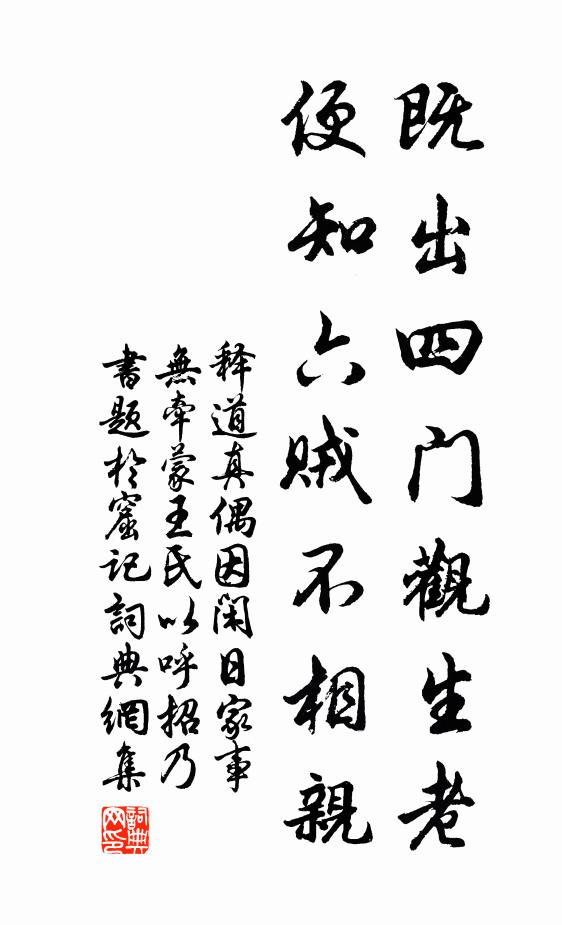 既出四门觀生老
便知六贼不相親
释道真偶因闲日家事
無牵蒙王氏以呼招乃
書题於窟记詞典網集
詞典
网印